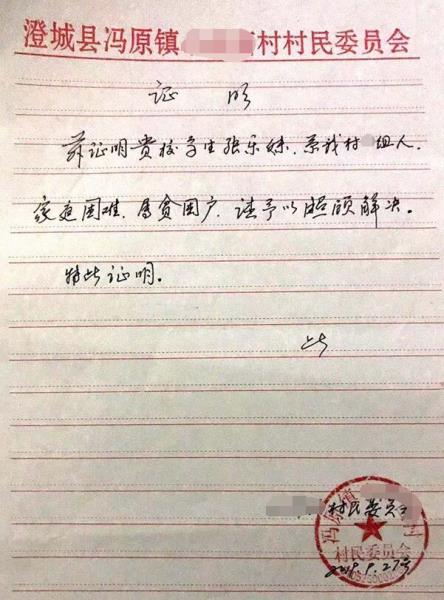 澄城县冯原镇 村村民委员会
证明
兹证明贵校学生张乐妹,系我村 组人,
家庭困难,属贫困户,请予以照顾解决。
特此证明。
此
村民委员会
冯原镇 村
村民委员会